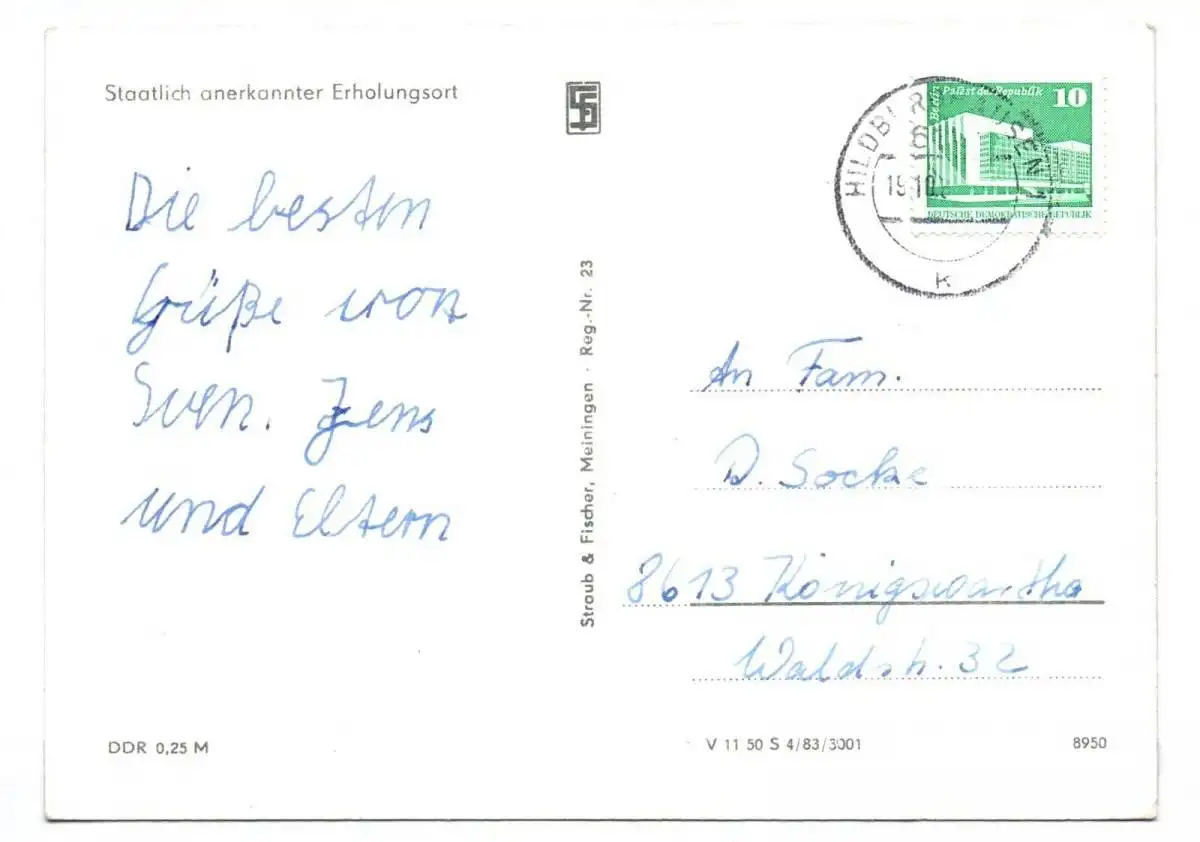 Staatlich anerkannter Erholungsort
Die besten
Grüße von
Sven. Jens
und Eltern
DDR 0,25 M
Straub & Fischer, Meiningen · Reg.-Nr. 23
Berlin Palast der Republik 10
DEUTSCHE DEMOKRATISCHE REPUBLIK
61
19.10.
k
An Fam.
D. Socke
8613 Königswartha
Waldstr. 32
V 11 50 S 4/83/3001
8950